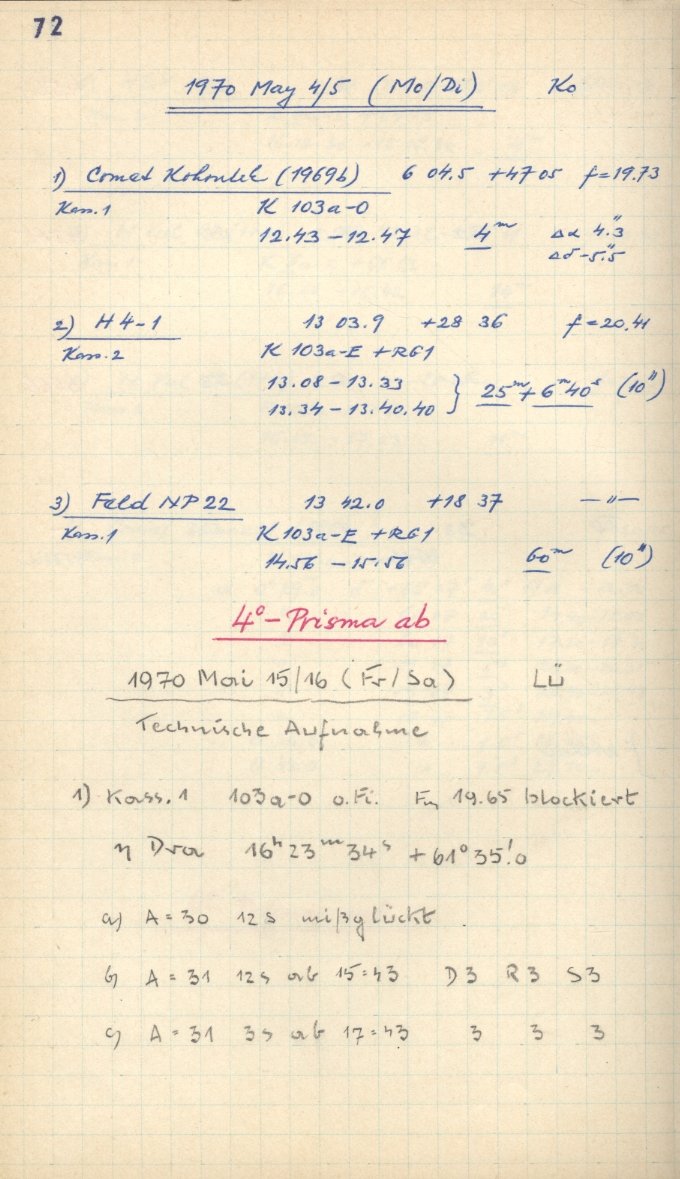 72
1970 May 4/5 (Mo/Di) Ko
1) Comet Kohoutek (1969b) 6 04.5 +47 05 f=19.73
Kass.1 K 103a-O
12.43 – 12.47 4ᵐ Δα 4.″3
Δδ -5.″5
2) H 4-1 13 03.9 +28 36 f=20.41
Kass.2 K 103a-E + RG1
13.08 – 13.33 } 25ᵐ + 6ᵐ40ˢ (10″)
13.34 – 13.40.40
3) Feld NP 22 13 42.0 +18 37 —〃—
Kass.1 K 103a-E + RG1
14.56 – 15.56 60ᵐ (10″)
4°-Prisma ab
1970 Mai 15/16 (Fr/Sa) LÜ
Technische Aufnahme
1) Kass. 1 103a-O o.Fi. 19.65 blockiert
η Dra 16ʰ23ᵐ34ˢ +61°35.′0
a) A = 30 12s mißglückt
b) A = 31 12s ab 15:43 D3 R3 S3
c) A = 31 3s ab 17:43 3 3 3